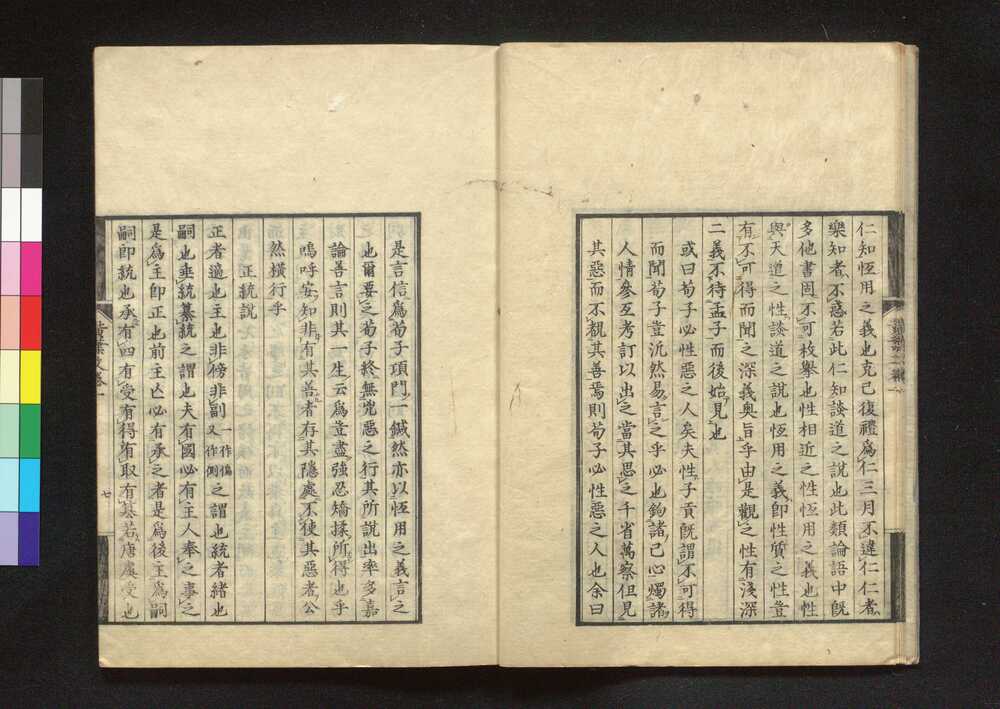 仁知恆用之義也克己復禮爲仁三月不違仁仁者
樂知者不惑若此仁知談道之說也此類論語中旣
多他書固不可枚擧也性相近之性恆用之義也性
與天道之性談道之說也恆用之義卽性質之性豈
有不可得而聞之深義奧旨乎由是觀之性有淺深
二義不待孟子而後始見也
或曰荀子必性惡之人矣夫性子貢旣謂不可得
而聞荀子豈沠然易言之乎必也鉤諸己心燭諸
人情參互考訂以出之當其思之千省萬察但見
其惡而不覩其善焉則荀子必性惡之人也余曰
是言信爲荀子項門一鍼然亦以恆用之義言之
也爾要之荀子終無兇惡之行其所說出率多嘉
論善言則其一生云爲豈盡強忍矯揉所得也乎
嗚呼安知非有其善者存其隱處不使其惡者公
然橫行乎
正統說
正者適也主也非徬非副一作偏又作側之謂也統者緖也
嗣也垂統纂統之謂也夫有國必有主人奉之事之
是爲主卽正也前主亡必有承之者是爲後主爲嗣
嗣卽統也承有四有受有得有取有簒若唐虞受也
黃葉文卷一
七